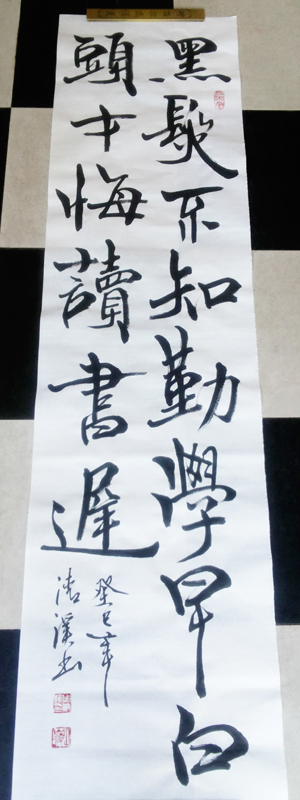 黑髮不知勤學早白
頭才悔讀書遲
癸巳年
清溪书